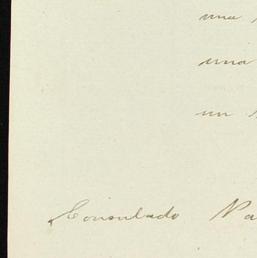 una
una
un
Consulado